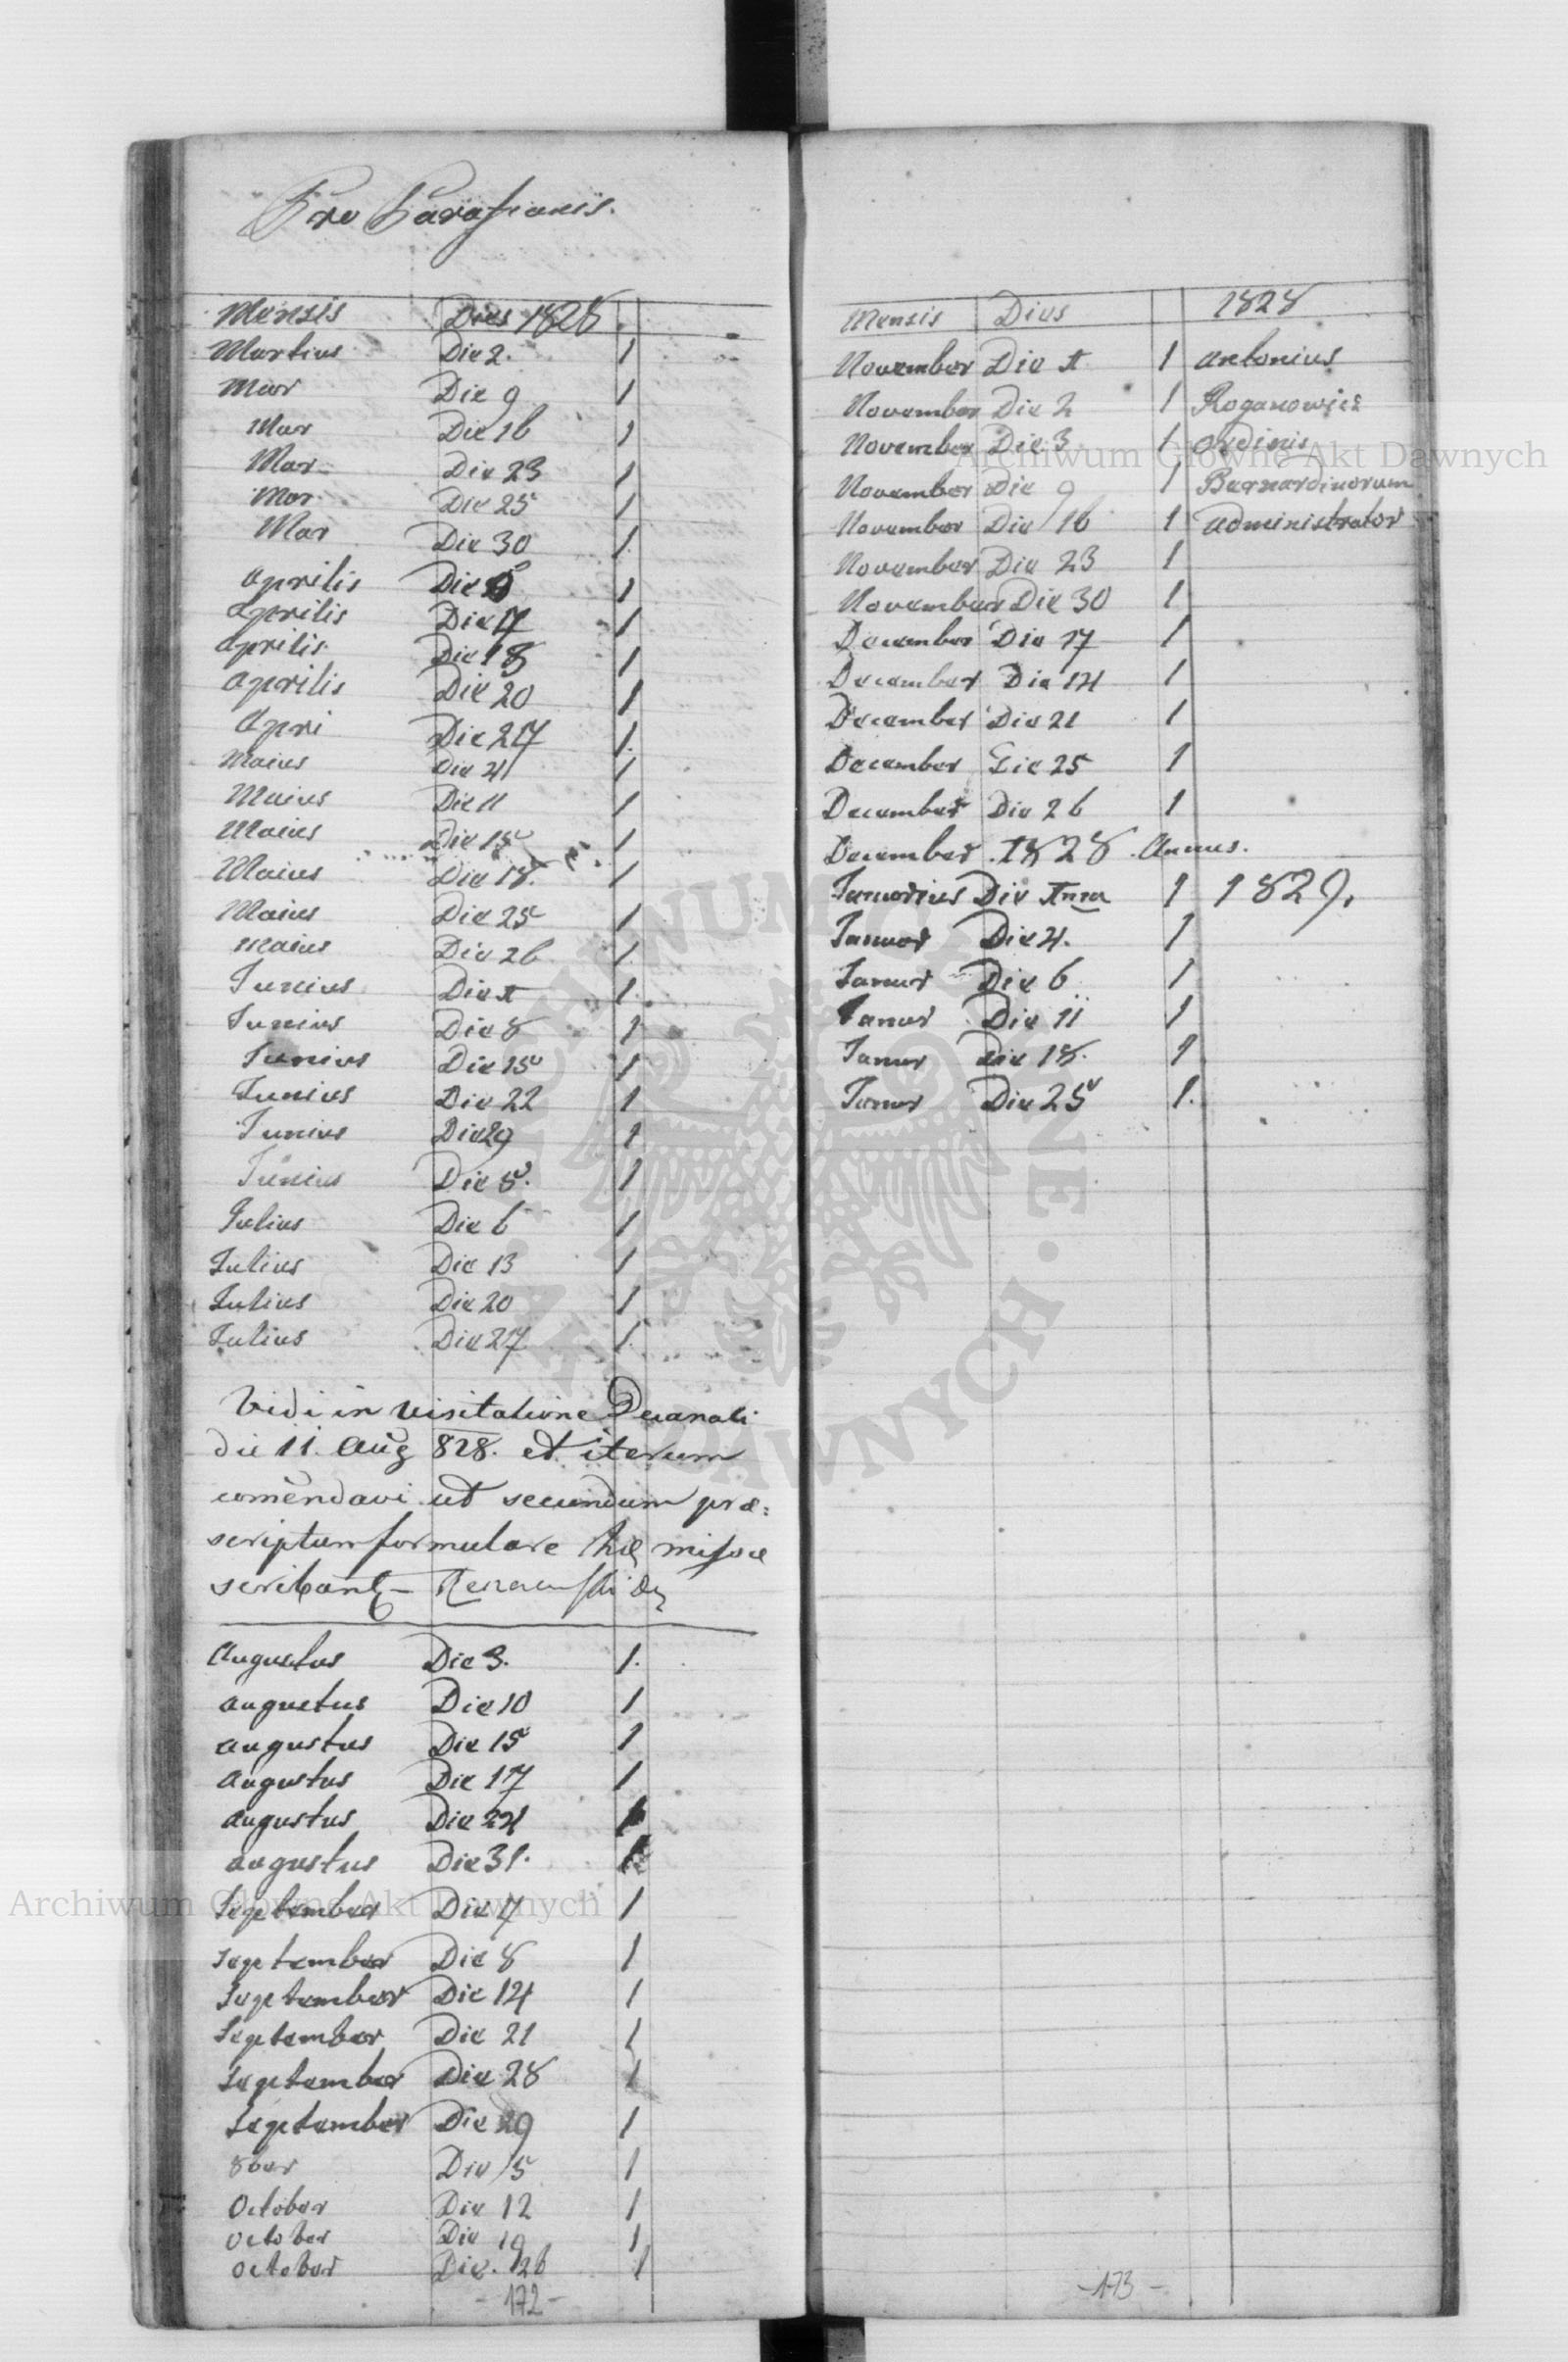 Pro Parafianis.
Mensis Dies 1828
Martius Die 2. 1
Mar Die 9 1
Mar Die 16 1
Mar Die 23 1
Mar Die 25 1
Mar Die 30 1
Aprilis Die 1
Aprilis Die 7 1
Aprilis Die 13 1
Aprilis Die 20 1
Apri Die 27 1
Maius Die 4 1
Maius Die 11 1
Maius Die 15 1
Maius Die 18. 1
Maius Die 25 1
Maius Die 26 1
Iunius Die 1 1
Iunius Die 8 1
Iunius Die 15 1
Iunius Die 22 1
Iunius Die 29 1
Iunius Die 5. 1
Iulius Die 6 1
Iulius Die 13 1
Iulius Die 20 1
Iulius Die 27 1
Vidi in visitatione Decanali
die 11. Aug 828. et iterum
comendavi ut secundum præ:
scriptum formulare hæ missæ
scribant
Augustus Die 3. 1.
Augustus Die 10 1
Augustus Die 15 1
Augustus Die 17 1
Augustus Die 24 1
Augustus Die 31. 1
September Die 7 1
September Die 8 1
September Die 14 1
September Die 21 1
September Die 28 1
September Die 29 1
8ber Die 5 1
October Die 12 1
October Die 19 1
October Die. 26 1
- 172 -
Mensis Dies 1828
November Die 1 1 Antonius
November Die 2 1 Roganowicz
November Die 3 1 Ordinis
November Die 9 1 Bernardinorum
November Die 16 1 Administrator
November Die 23 1
November Die 30 1
December Die 17 1
December Die 14 1
December Die 21 1
December Die 25 1
December Die 26 1
December 1828. Annus.
Ianuarius Die 1ma 1 1829.
Ianuar Die 4. 1
Ianuar Die 6 1
Ianuar Die 11 1
Ianuar Die 18. 1
Ianuar Die 25 1.
- 173 -
Archiwum Główne Akt Dawnych
Archiwum Główne Akt Dawnych
ARCHIWUM GŁÓWNE · AKT DAWNYCH ·